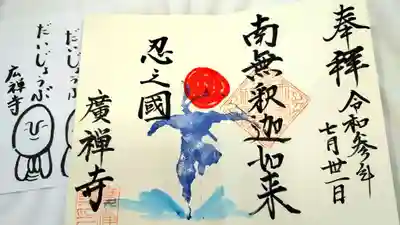 奉拝
令和参年
七月丗一日
南無釈迦如来
忍之國
廣禅寺
だいじょうぶ
だいじょうぶ
広禅寺